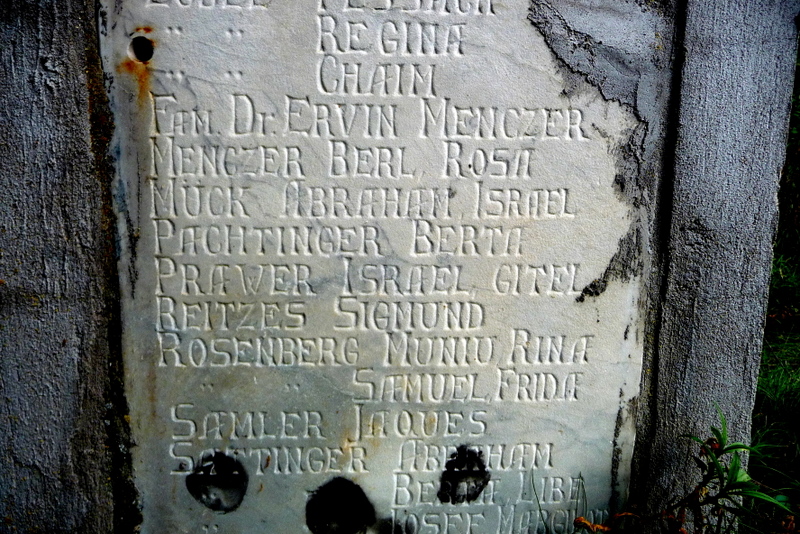 " " REGINA
" " CHAIM
FAM. Dr. ERVIN MENCZER
MENCZER BERL, ROSA
MUCK ABRAHAM, ISRAEL
PACHTINGER BERTA
PRAWER ISRAEL, GITEL
REITZES SIGMUND
ROSENBERG MUNIU, RINA
" " SAMUEL, FRIDA
SAMLER JAQUES
ABRAHAM
LUBE
IOSEF